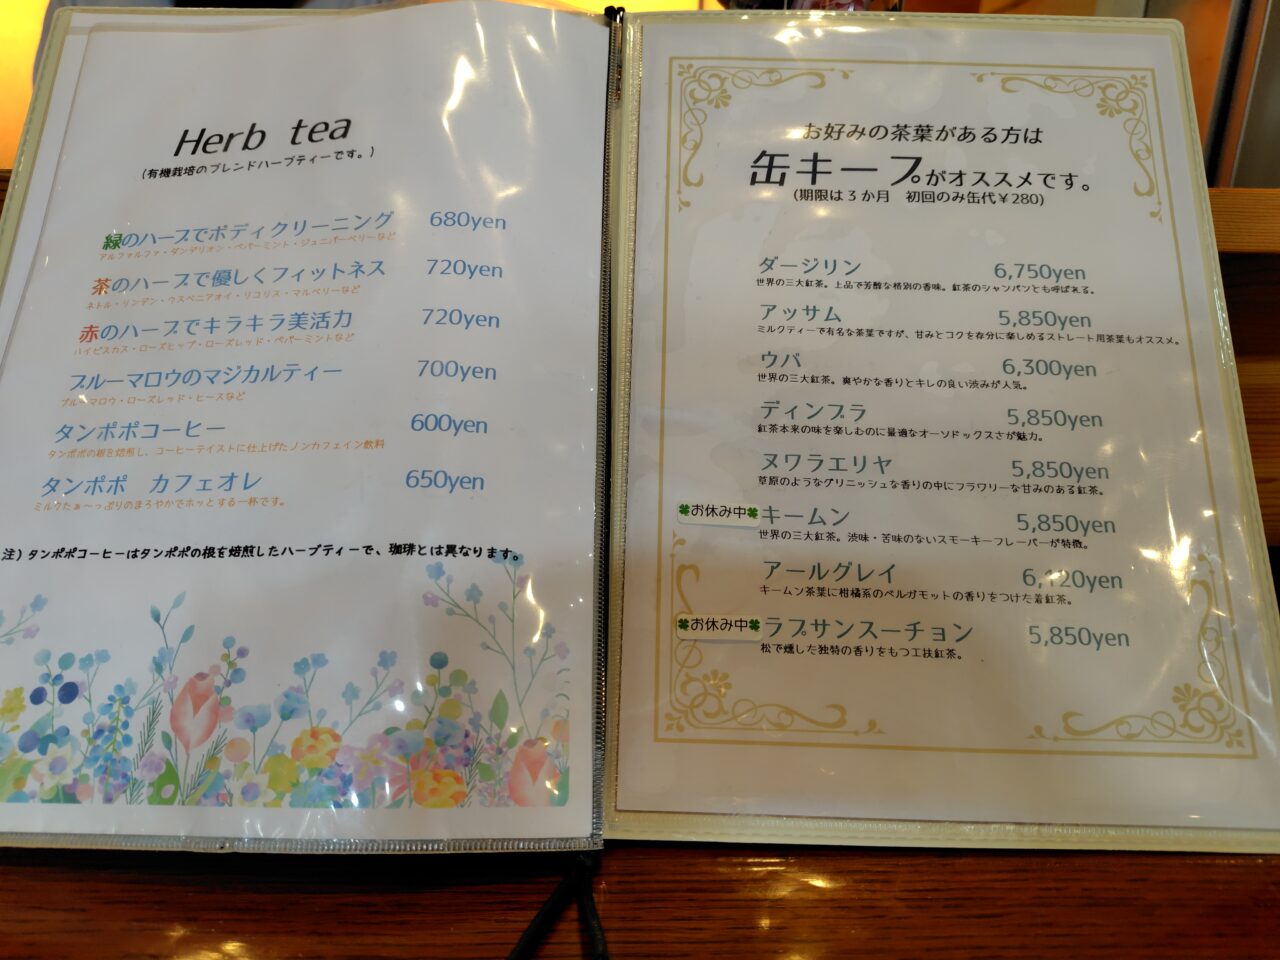 Herb tea
(有機栽培のブレンドハーブティーです。)
緑のハーブでボディクリーニング 680yen
アルファルファ・ダンデリオン・ペパーミント・ジュニパーベリーなど
茶のハーブで優しくフィットネス 720yen
ネトル・リンデン・ウスベニアオイ・リコリス・マルベリーなど
赤のハーブでキラキラ美活力 720yen
ハイビスカス・ローズヒップ・ローズレッド・ペパーミントなど
ブルーマロウのマジカルティー 700yen
ブルーマロウ・ローズレッド・ヒースなど
タンポポコーヒー 600yen
タンポポの根を焙煎し、コーヒーテイストに仕上げたノンカフェイン飲料
タンポポ カフェオレ 650yen
ミルクたぁ〜っぷりのまろやかでホッとする一杯です。
注）タンポポコーヒーはタンポポの根を焙煎したハーブティーで、珈琲とは異なります。
お好みの茶葉がある方は
缶キープがオススメです。
(期限は３か月 初回のみ缶代￥280)
ダージリン 6,750yen
世界の三大紅茶。上品で芳醇な格別の香味。紅茶のシャンパンとも呼ばれる。
アッサム 5,850yen
ミルクティーで有名な茶葉ですが、甘みとコクを存分に楽しめるストレート用茶葉もオススメ。
ウバ 6,300yen
世界の三大紅茶。爽やかな香りとキレの良い渋みが人気。
ディンブラ 5,850yen
紅茶本来の味を楽しむのに最適なオーソドックスさが魅力。
ヌワラエリヤ 5,850yen
草原のようなグリニッシュな香りの中にフラワリーな甘みのある紅茶。
🍀お休み中🍀キームン 5,850yen
世界の三大紅茶。渋味・苦味のないスモーキーフレーバーが特徴。
アールグレイ 6,120yen
キームン茶葉に柑橘系のベルガモットの香りをつけた着紅茶。
🍀お休み中🍀ラプサンスーチョン 5,850yen
松で燻した独特の香りをもつ工扶紅茶。